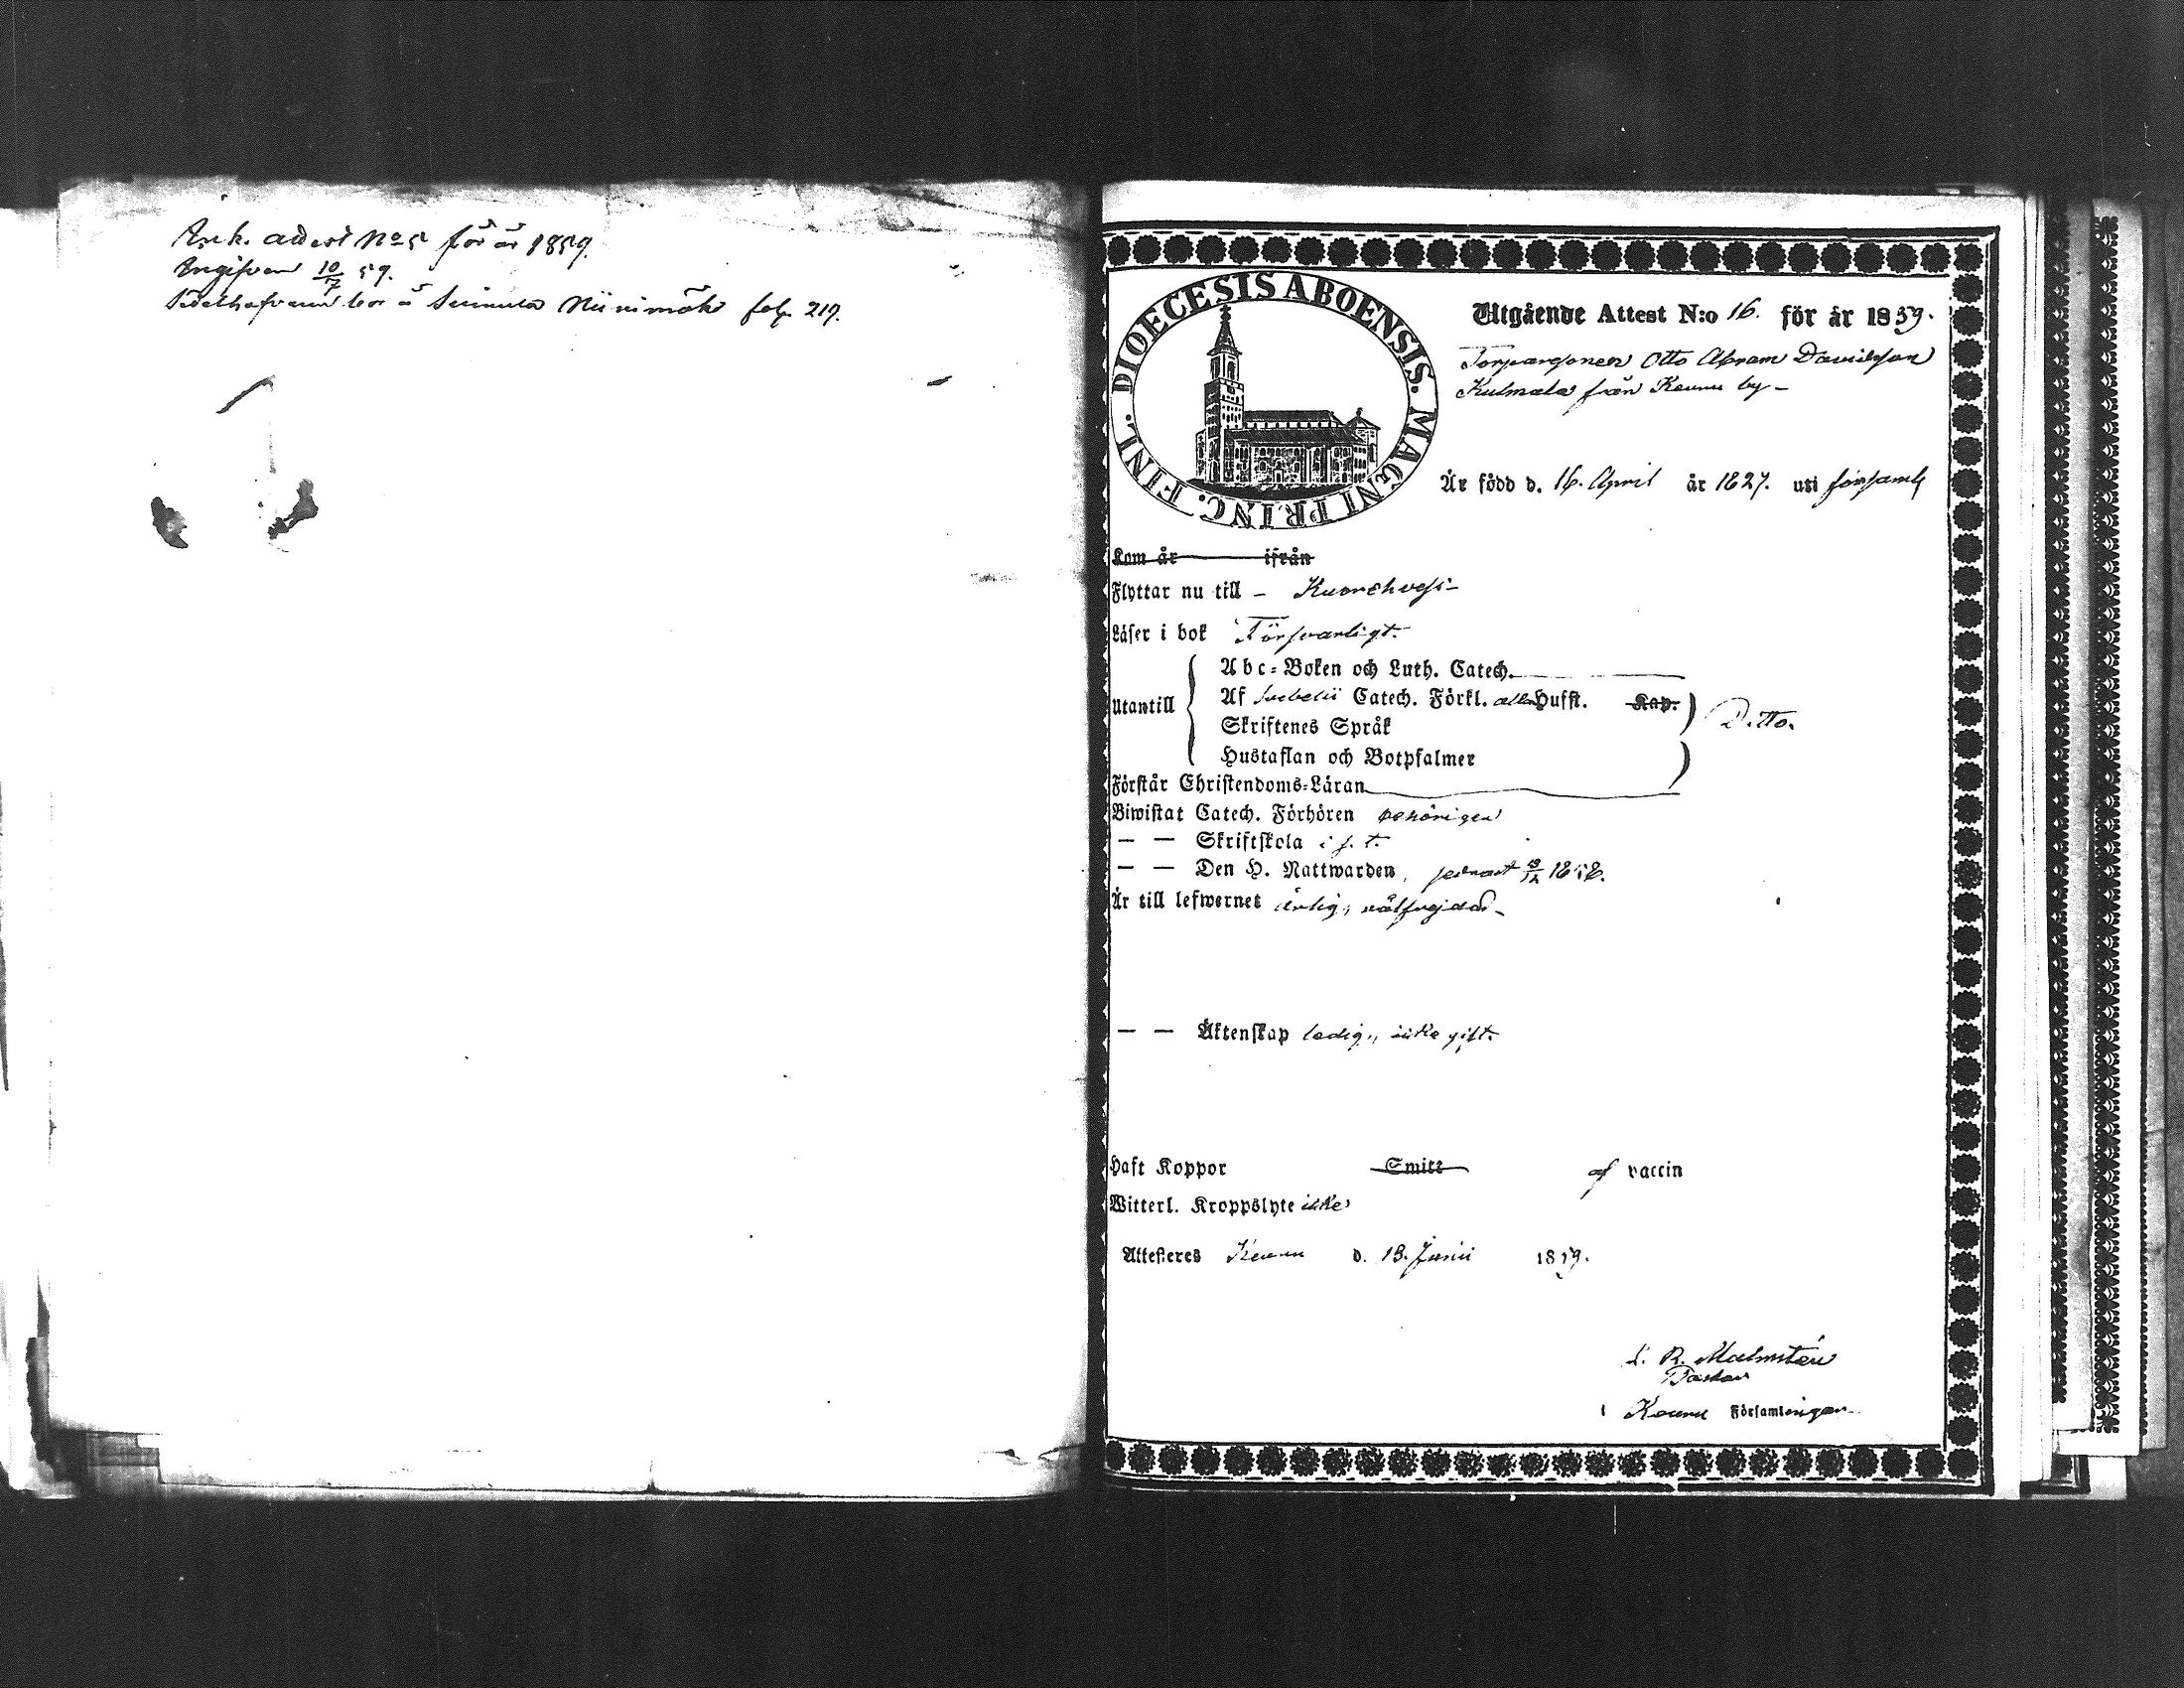 Ank. attest No 5 för år 1859.
Ingifven 10/7 59.
bor å Suinula Niinimäki fol. 219.
DIOECESIS ABOENSIS. MAGNI PRINC. FINL.
Utgående Attest N:o 16. för år 1859.
Torparsonen Otto Abram Davidsson
Kulmala från Keuru by –
Är född d. 16. April år 1827. uti församl
Kom år ifrån
Flyttar nu till – Kuorehvesi –
Läser i bok Försvarligt.
Utantill
Abc-Boken och Luth. Catech.
Af Svebelii Catech. Förkl. allen Hufst. Kap.
Skriftenes Språk
Hustaflan och Botpsalmer
Ditto.
Förstår Christendoms-Läran
Biwistat Catech. Förhören behörigen
— — Skriftskola i s. t.
— — Den H. Nattwarden, senast 1858.
Är till lefwernet ärlig, välfrejdad –
— — Äktenskap ledig, icke gift.
Haft Koppor Smitt af vaccin
Witterl. Kroppslyte icke
Attesteras Keuru d. 13. Junii 1859.
L. R. Malmstén
Pastor
i Keuru Församlingen